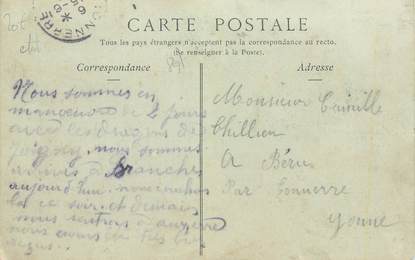 TONNERRE
CARTE POSTALE
Tous les pays étrangers n'acceptent pas la correspondance au recto.
(Se renseigner à la Poste).
Correspondance
Adresse
Nous sommes en
manoeuvre de 2 jours
avec les dragons de
Joigny, nous sommes
arrivés à Branches
aujourd'hui. nous
la ce soir. et demain
nous rentrons à auxerre
nous avons très
Monsieur Camille
Thillien
A Béru
Par Tonnerre
Yonne